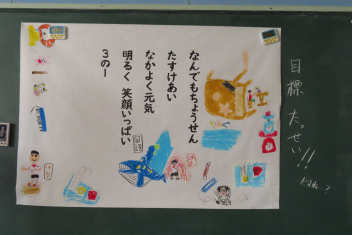 なんでもちょうせん
たすけあい
なかよく元気
明るく 笑顔いっぱい
3の1
目標 たっせい!!